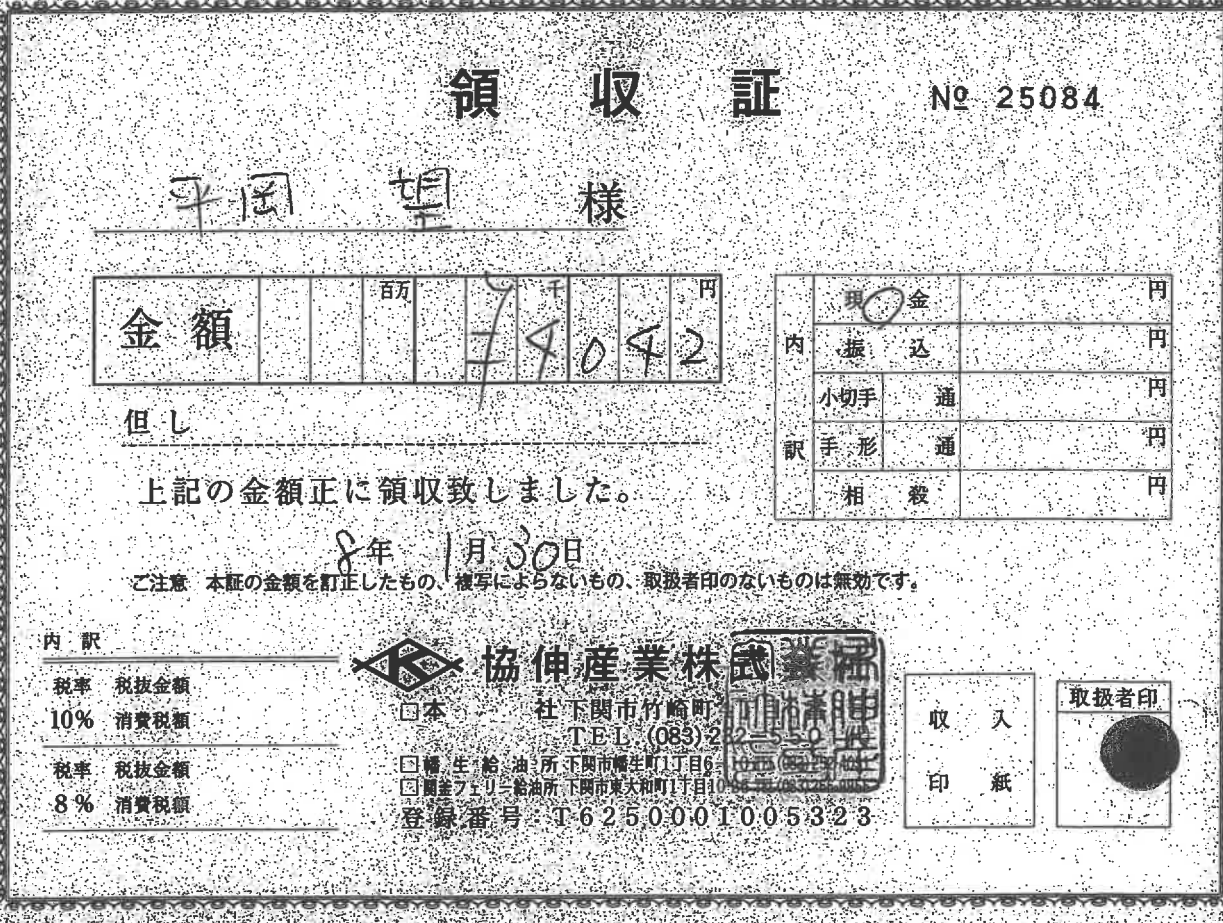 領収証 № 25084
平岡 望 様
金額 百万 千 円
4042
但し
上記の金額正に領収致しました。
8年 1月 30日
ご注意 本証の金額を訂正したもの、複写によらないもの、取扱者印のないものは無効です。
内訳
現金 円
振込 円
小切手 通 円
手形 通 円
相殺 円
内訳
税率 税抜金額
10% 消費税額
税率 税抜金額
8% 消費税額
K 協伸産業株式
□本 社 下関市竹崎町
TEL (083)
□幡生給油所 下関市幡生町1丁目6
□関金フェリー給油所 下関市東大和町1丁目10
登録番号:T6250001005323
収入
印紙
取扱者印